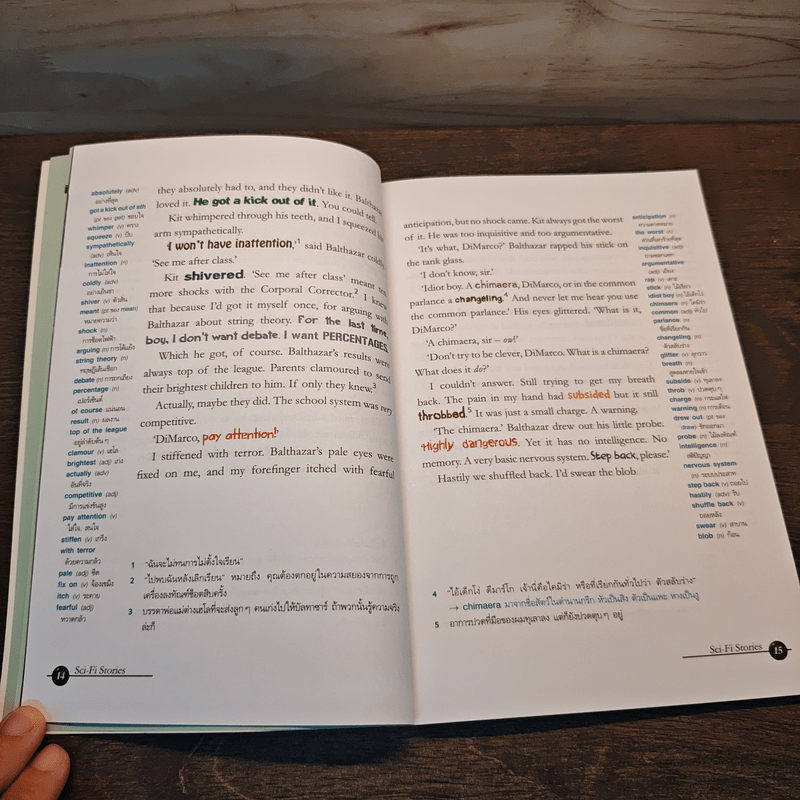 absolutely (adv)
อย่างที่สุด
got a kick out of sth
(pt ของ get) ชอบใจ
whimper (v) คราง
squeeze (v) บีบ
sympathetically
(adv) เห็นใจ
inattention (n)
การไม่ใส่ใจ
coldly (adv)
อย่างเย็นชา
shiver (v) ตัวสั่น
meant (pt ของ mean)
หมายความว่า
shock (n)
การช็อตไฟฟ้า
arguing (n) การโต้แย้ง
string theory (n)
ทฤษฎีเส้นเชือก
debate (n) การถกเถียง
percentage (n)
เปอร์เซ็นต์
of course แน่นอน
result (n) ผลงาน
top of the league
อยู่ลำดับต้นๆ
clamour (v) เฮโล
brightest (adj) เก่ง
actually (adv)
อันที่จริง
competitive (adj)
มีการแข่งขันสูง
pay attention (v)
ใส่ใจ, สนใจ
stiffen (v) เกร็ง
with terror
ด้วยความกลัว
pale (adj) ซีด
fix on (v) จ้องเขม็ง
itch (v) ระคาย
fearful (adj)
หวาดกลัว
they absolutely had to, and they didn't like it. Balthazar
loved it. He got a kick out of it. You could tell.
Kit whimpered through his teeth, and I squeezed his
arm sympathetically.
'I won't have inattention,'1 said Balthazar coldly.
'See me after class.'
Kit shivered. 'See me after class' meant ten
more shocks with the Corporal Corrector.2 I knew
that because I'd got it myself once, for arguing with
Balthazar about string theory. For the last time,
boy, I don't want debate. I want PERCENTAGES.
Which he got, of course. Balthazar's results were
always top of the league. Parents clamoured to send
their brightest children to him. If only they knew.3
Actually, maybe they did. The school system was very
competitive.
'DiMarco, pay attention!'
I stiffened with terror. Balthazar's pale eyes were
fixed on me, and my forefinger itched with fearful
1 "ฉันจะไม่ทนการไม่ตั้งใจเรียน"
2 "ไปพบฉันหลังเลิกเรียน" หมายถึง คุณต้องตกอยู่ในความสยองจากการถูก
เครื่องลงทัณฑ์ช็อตสิบครั้ง
3 บรรดาพ่อแม่ต่างเฮโลที่จะส่งลูกๆ คนเก่งไปให้บัลทาซาร์ ถ้าพวกนั้นรู้ความจริง
ล่ะก็
14 Sci-Fi Stories
anticipation, but no shock came. Kit always got the worst
of it. He was too inquisitive and too argumentative.
'It's what, DiMarco?' Balthazar rapped his stick on
the tank glass.
'I don't know, sir.'
'Idiot boy. A chimaera, DiMarco, or in the common
parlance a changeling.4 And never let me hear you use
the common parlance.' His eyes glittered. 'What is it,
DiMarco?'
'A chimaera, sir – ow!'
'Don't try to be clever, DiMarco. What is a chimaera?
What does it do?'
I couldn't answer. Still trying to get my breath
back. The pain in my hand had subsided but it still
throbbed.5 It was just a small charge. A warning.
'The chimaera.' Balthazar drew out his little probe.
'Highly dangerous. Yet it has no intelligence. No
memory. A very basic nervous system. Step back, please.'
Hastily we shuffled back. I'd swear the blob
anticipation (n)
ความคาดหมาย
the worst (n)
ส่วนที่เลวร้ายที่สุด
inquisitive (adj)
argumentative
(adj)
rap (v) เคาะ
stick (n) ไม้เรียว
idiot boy (n) ไอ้เด็กโง่
chimaera (n) ไคมิร่า
common (adj) ทั่วไป
parlance (n)
ชื่อที่เรียกกัน
changeling (n)
ตัวสลับร่าง
glitter (v) ลุกวาว
breath (n)
ลมหายใจเข้า
subside (v) ทุเลาลง
throb (v) ปวดตุบๆ
charge (n) กระแสไฟ
warning (n) การเตือน
drew out (pt ของ
draw) ชักออกมา
probe (n)
intelligence (n)
สติปัญญา
nervous system
(n) ระบบประสาท
step back (v) ถอยไป
hastily (adv) รีบ
shuffle back (v)
ถอยหลัง
swear (v) สาบาน
blob (n) ก้อน
4 "ไอ้เด็กโง่ ดีมาร์โก เจ้านี่คือไคมิร่า หรือที่เรียกกันทั่วไปว่า ตัวสลับร่าง"
→ chimaera มาจากชื่อสัตว์ในตำนานกรีก หัวเป็นสิง ตัวเป็นแพะ หางเป็นงู
5 อาการปวดที่มือของผมทุเลาลง แต่ก็ยังปวดตุบๆ อยู่
Sci-Fi Stories 15